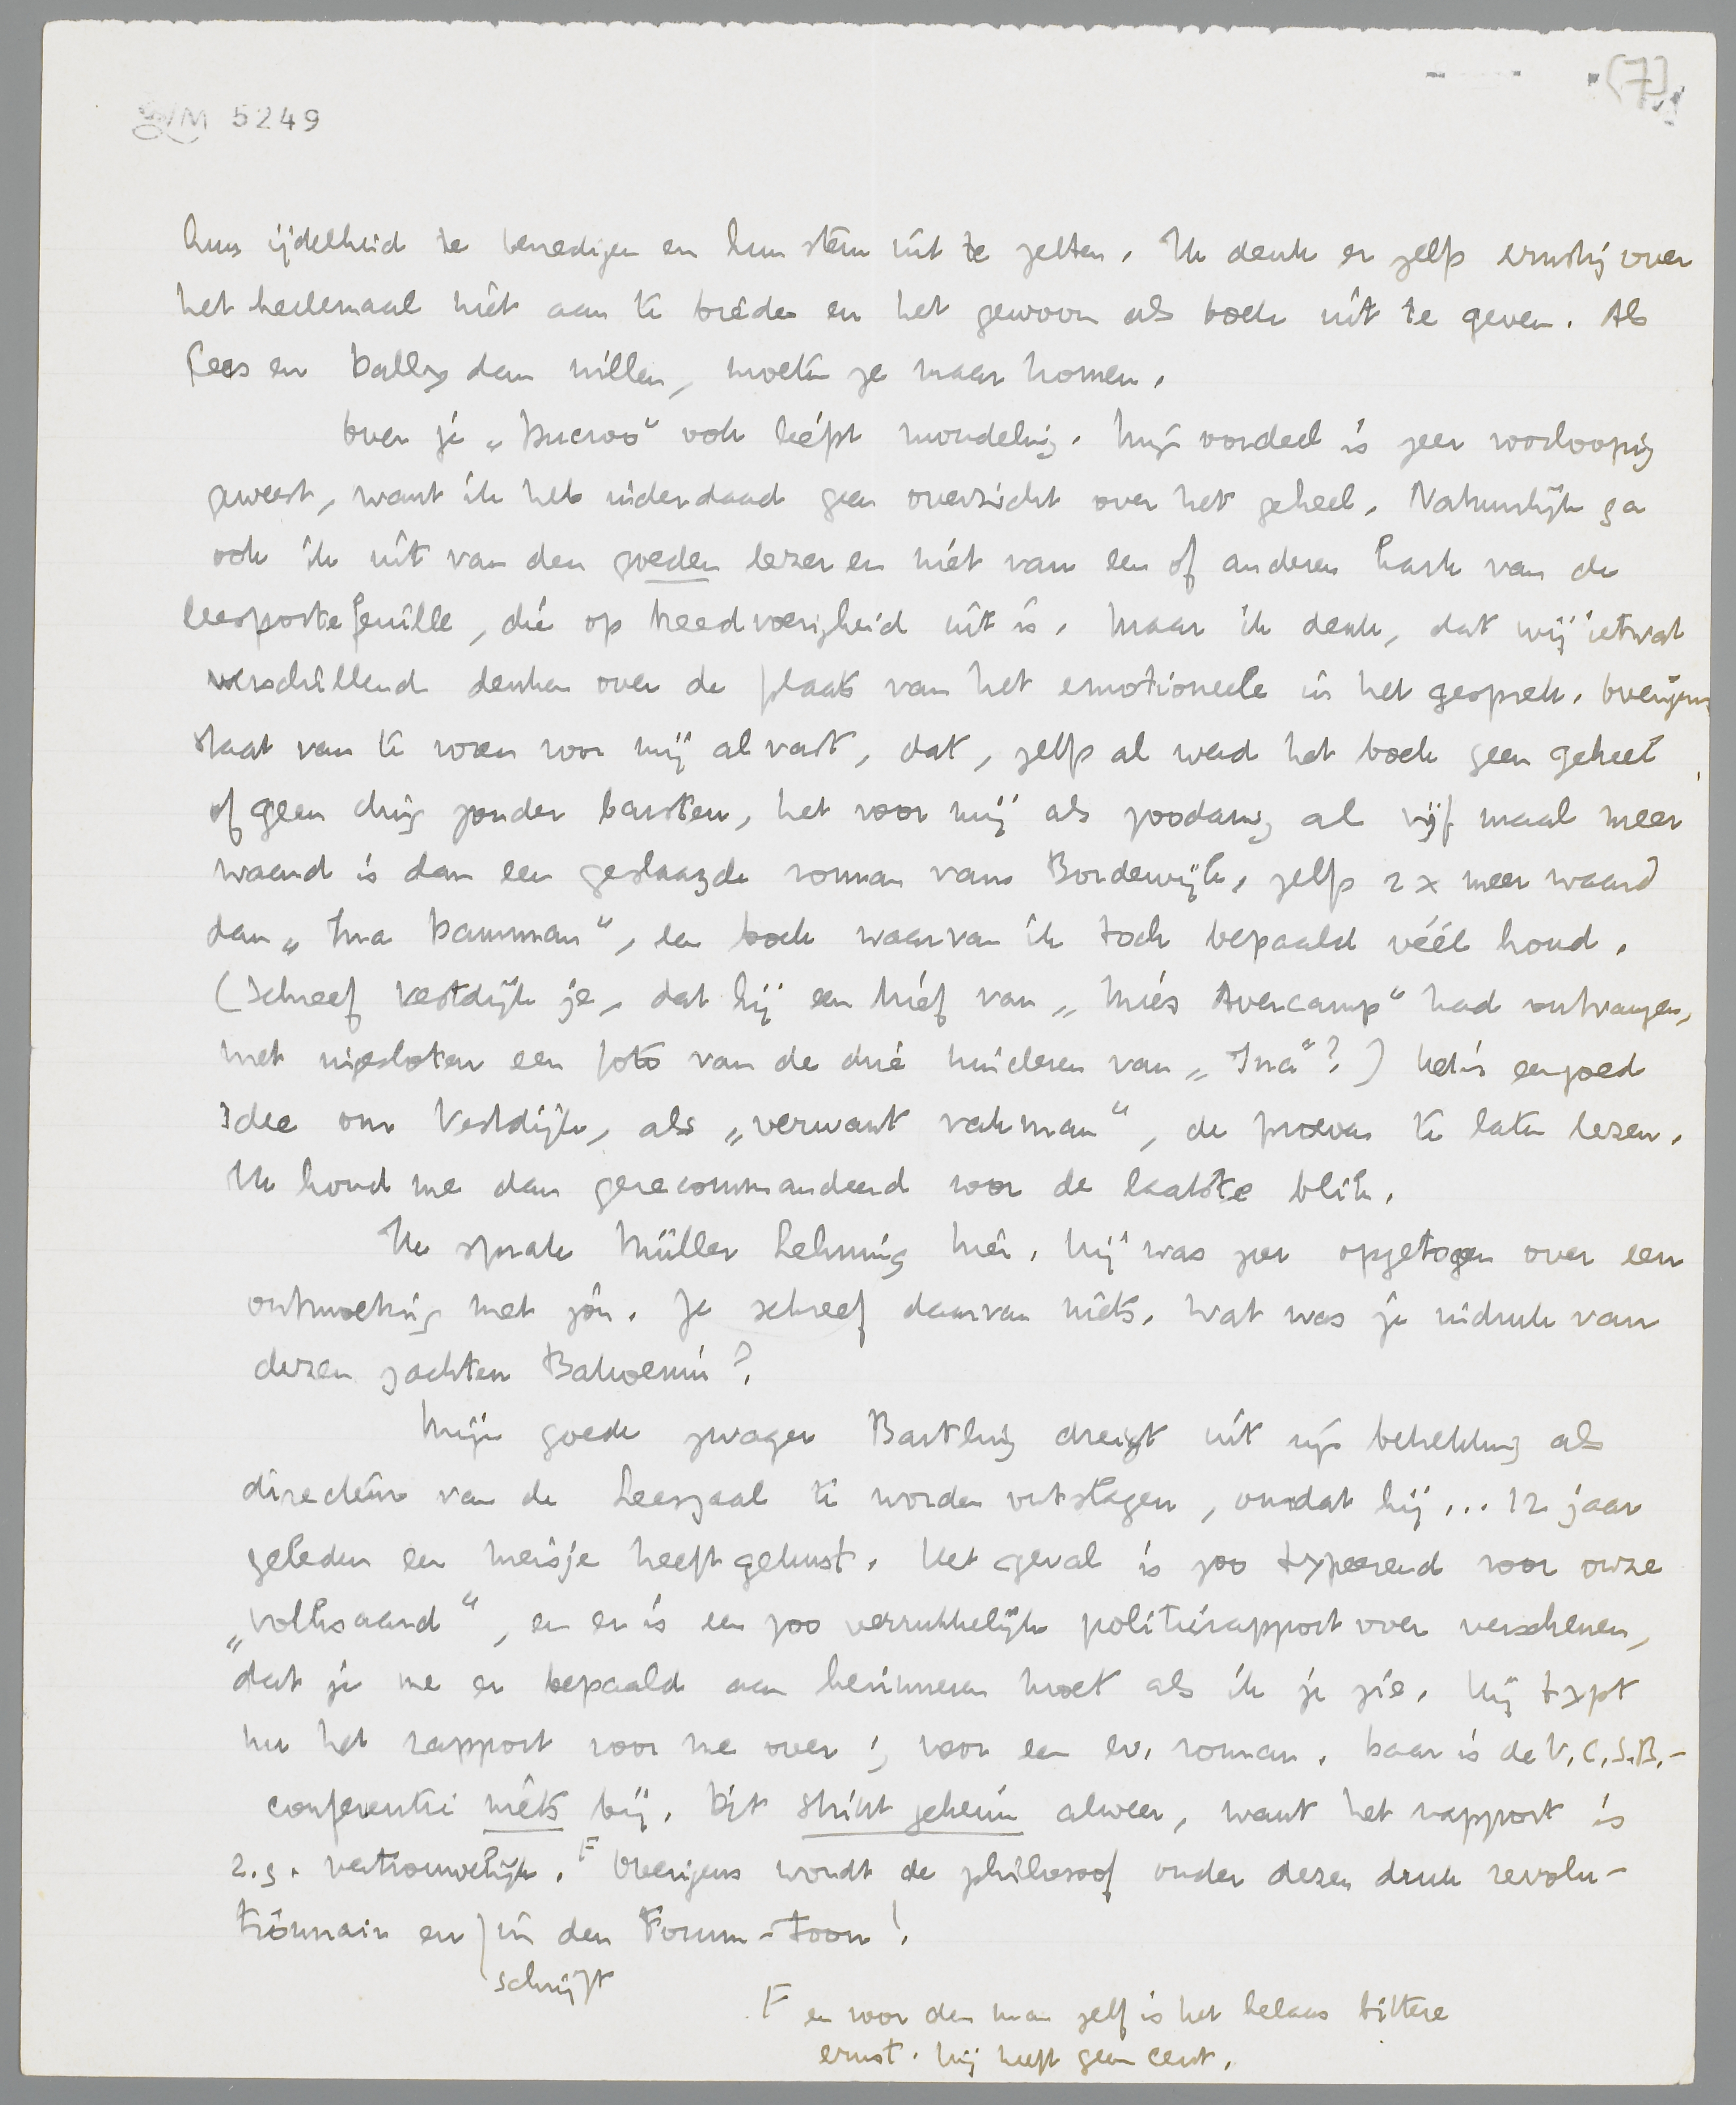 (7)
LM 5249
hun ijdelheid te bevredigen en hun stem uit te zetten. Ik denk er zelfs ernstig over
het heelemaal niet aan te bieden en het gewoon als boek uit te geven. Als
Cees en Dolly dan willen, moeten ze maar komen.
Over je „Ducroo" ook liefst mondeling. Mijn oordeel is zeer voorloopig
geweest, want ik heb inderdaad geen overzicht over het geheel. Natuurlijk ga
ook ik uit van den goeden lezer en niet van een of anderen hark van de
leesportefeuille, die op breedvoerigheid uit is. Maar ik denk, dat wij ietwat
verschillend denken over de plaats van het emotioneele in het gesprek. Overigens
staat van te voren voor mij al vast, dat, zelfs al werd het boek geen geheel
of geen ding zonder barsten, het voor mij als zoodanig al vijf maal meer
waard is dan een geslaagde roman van Bordewijk, zelfs 2 x meer waard
dan „Ina Damman", een boek waarvan ik toch bepaald véél houd.
(Schreef Vestdijk je, dat hij een brief van „Mies Avercamp" had ontvangen,
met ingesloten een foto van de drie kinderen van „Ina"?) Het is een goed
idee om Vestdijk, als „verwant vakman", de proeven te laten lezen.
Ik houd me dan gerecommandeerd voor de laatste blik.
Ik sprak Müller Lehning hier. Hij was zeer opgetogen over een
ontmoeting met jou. Je schreef daarvan niets. Wat was je indruk van
dezen zachten Bakoenin?
Mijn goede zwager Bartling dreigt uit zijn betrekking als
directeur van de Leeszaal te worden ontslagen, omdat hij... 12 jaar
geleden een meisje heeft gekust. Het geval is zoo typeerend voor onze
„volksaard", en er is een zoo verrukkelijk politierapport over verschenen,
dat je me er bepaald aan herinneren moet als ik je zie. Hij typt
nu het rapport voor me over; voor een ev. roman. Daar is de V.C.S.B.-
conferentie niets bij. Dit strikt geheim alweer, want het rapport is
z.g. vertrouwelijk. F Overigens wordt de philosoof onder dezen druk revolu-
tionnair en schrijft in den Forum-toon!
F en voor den man zelf is het helaas bittere
ernst. Hij heeft geen cent.